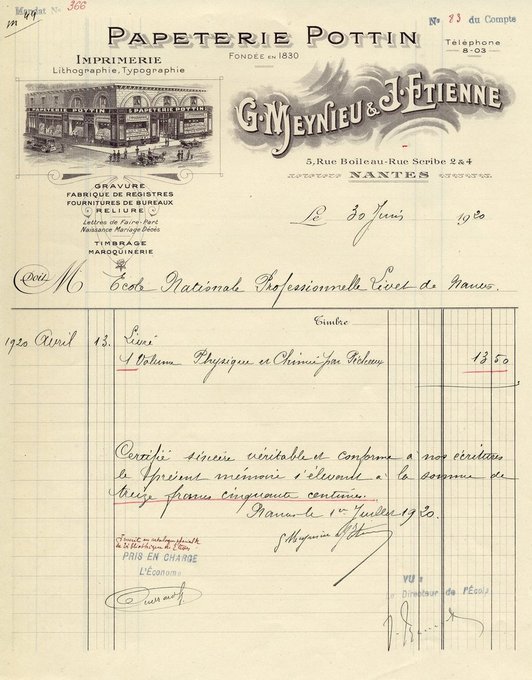 Mandat N° 366
m 49
N° 83 du Compte
PAPETERIE POTTIN
FONDÉE EN 1830
Téléphone
8-03
IMPRIMERIE
Lithographie, Typographie
PAPETERIE POTTIN
5 PAPETERIE POTTIN
G. MEYNIEU & J. ETIENNE
5, Rue Boileau-Rue Scribe 2 & 4
NANTES
GRAVURE
FABRIQUE DE REGISTRES
FOURNITURES DE BUREAUX
RELIURE
Lettres de Faire-Part
Naissance Mariage Décés
TIMBRAGE
MAROQUINERIE
Le 30 Juin 1920
Doit M École Nationale Professionnelle Livet de Nantes
Timbre
1920 Avril 13. Livré
1 Volume Physique et Chimie par 13 50
Certifié sincère véritable et conforme à nos écritures
le présent mémoire s'élevant à la somme de
treize francs cinquante centimes.
Nantes le 1er Juillet 1920.
G Meynieu
Inscrit au catalogue spécial de
la bibliothèque des Élèves
PRIS EN CHARGE
L'Économe
VU:
Le Directeur de l'École